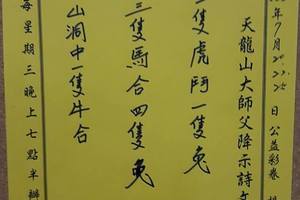 年9月20.23.25日公益彩卷
天龍山大師父降示詩文
二隻虎鬥一隻兔
三隻馬合四隻兔
山洞中一隻牛合
每星期三晚上七點半辦